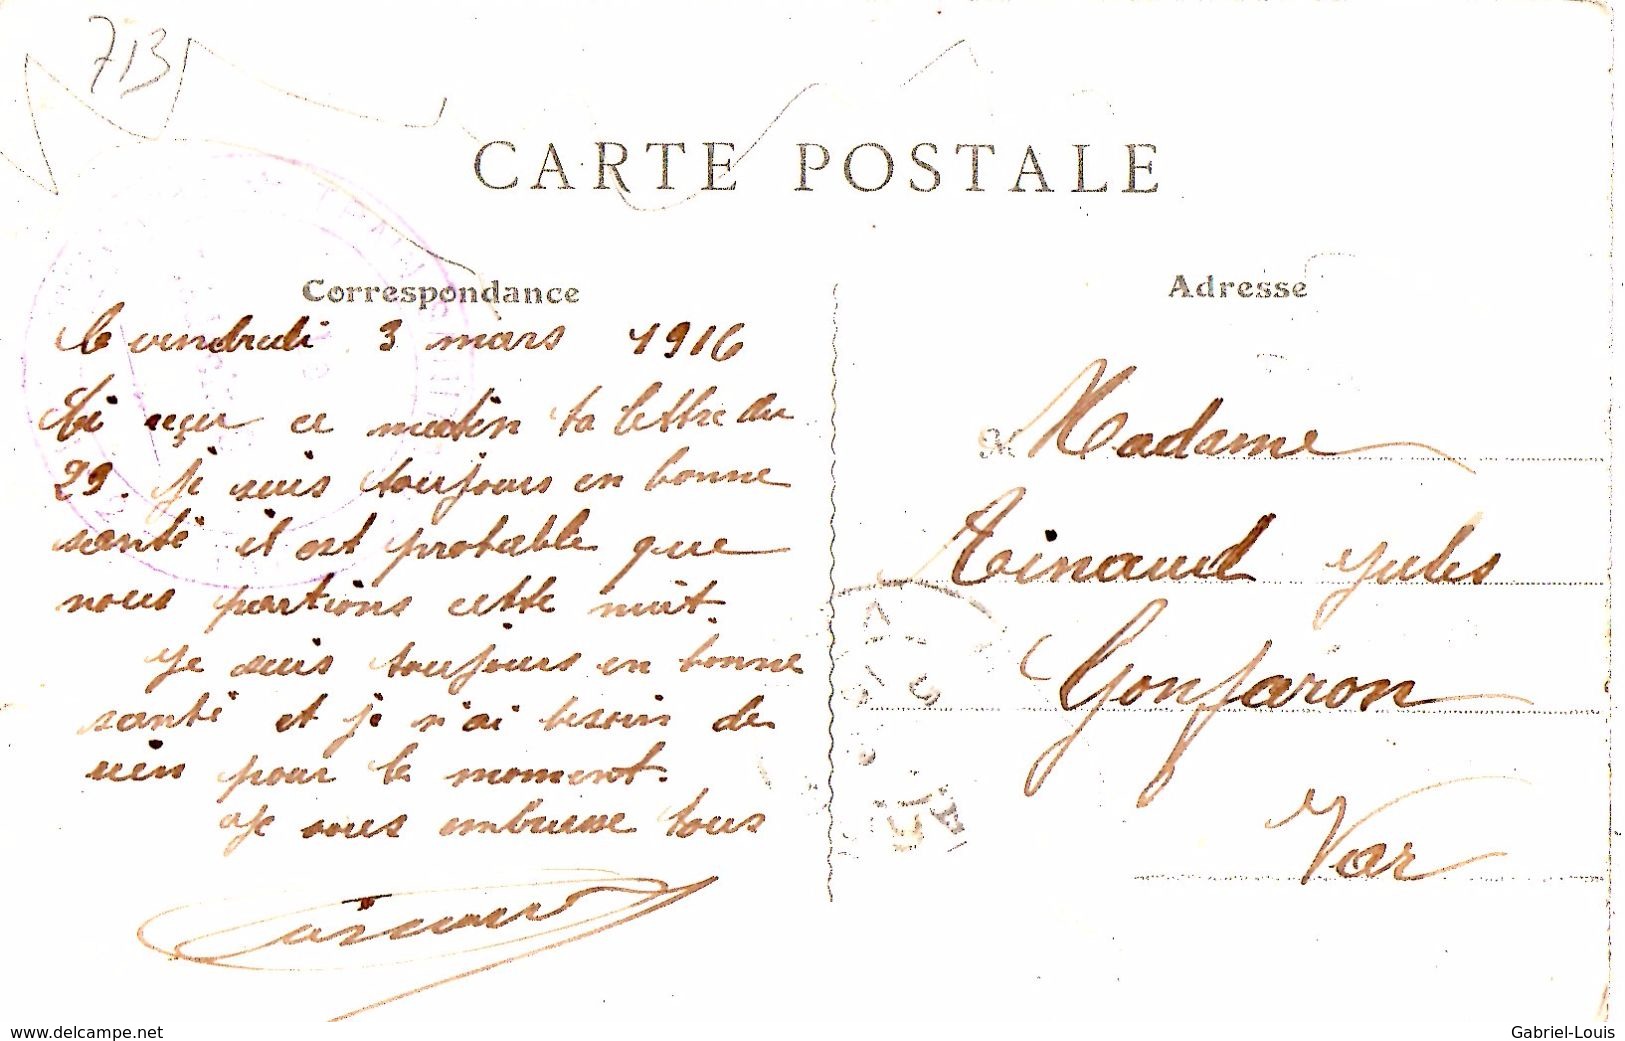 713
CARTE POSTALE
Correspondance
le vendredi 3 mars 1916
Ai reçu ce matin ta lettre du
29. je suis toujours en bonne
santé il est probable que
nous partions cette nuit.
je suis toujours en bonne
santé et je n'ai besoin de
rien pour le moment.
Je vous embrasse tous
Adresse
M
Madame
Jules
Gonfaron
Var
www.delcampe.net
Gabriel-Louis